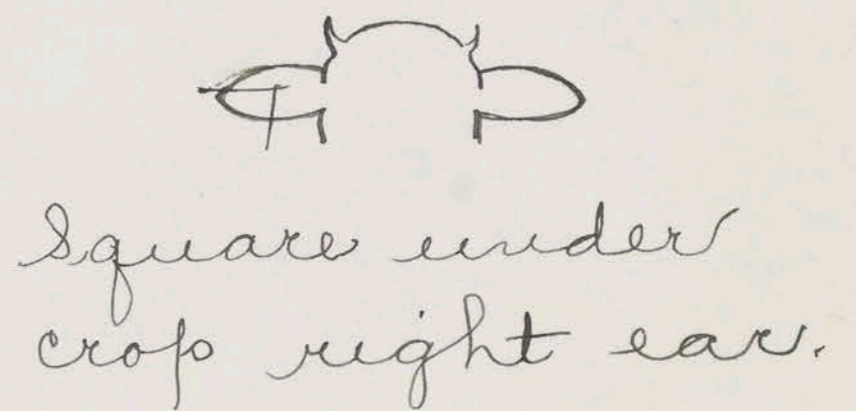 Square under
crop right ear.